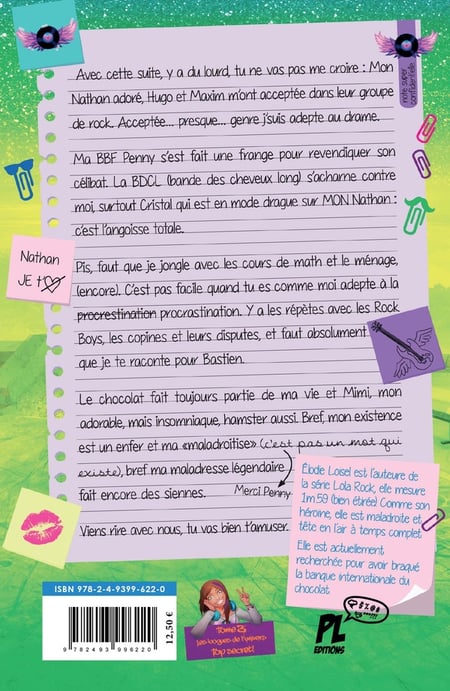 note super
confidentielle
Avec cette suite, y a du lourd, tu ne vas pas me croire : Mon
Nathan adoré, Hugo et Maxim m'ont acceptée dans leur groupe
de rock. Acceptée... presque... genre j'suis adepte au drame.
Ma BBF Penny s'est fait une frange pour revendiquer son
célibat. La BDCL (bande des cheveux long) s'acharne contre
moi, surtout Cristal qui est en mode drague sur MON Nathan :
c'est l'angoisse totale.
Nathan
JE t'
Pis, faut que je jongle avec les cours de math et le ménage,
(encore). C'est pas facile quand tu es comme moi adepte à la
procrestination procrastination. Y a les répètes avec les Rock
Boys, les copines et leurs disputes, et faut absolument
que je te raconte pour Bastien.
Le chocolat fait toujours partie de ma vie et Mimi, mon
adorable, mais insomniaque, hamster aussi. Bref, mon existence
est un enfer et ma «maladroitise» (c'est pas un mot qui
existe), bref ma maladresse légendaire
fait encore des siennes.
Merci Penny
Viens rire avec nous, tu vas bien t'amuser.
Élodie Loisel est l'auteure de
la série Lola Rock, elle mesure
1m59 (bien étirée) Comme son
héroïne, elle est maladroite et
tête en l'air à temps complet.
Elle est actuellement
recherchée pour avoir braqué
la banque internationale du
chocolat.
ISBN 978-2-4-9399-622-0
9 782493 996220
12,50 €
Tome 3,
Les langues de l'univers
Top secret!
PL
EDITIONS